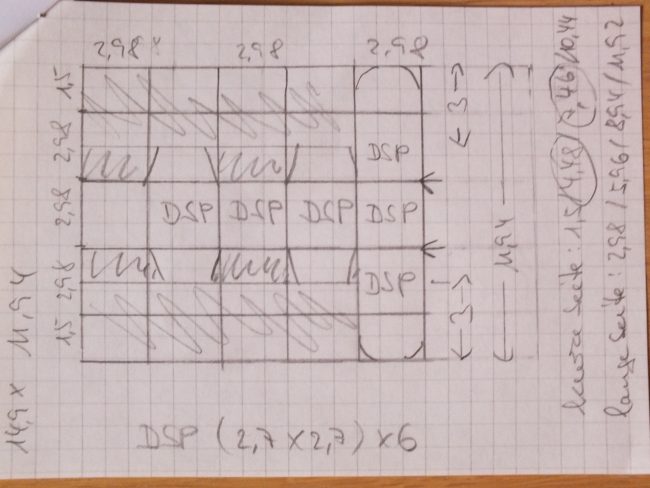 2,98 2,98 2,98
1,5
2,98
DSP
← 3 →
2,98
DSP DSP DSP DSP
11,94
2,98
DSP
← 3 →
1,5
14,9 x 11,94
DSP (2,7 x 2,7) x 6
kurze Seite: 1,5/4,48/7,46/10,44
lange Seite: 2,98/5,96/8,94/11,92